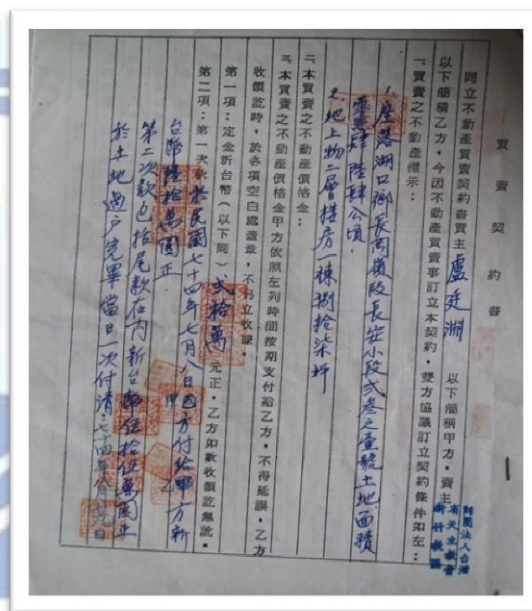 買賣契約書
同立不動產買賣契約書買主盧廷淵以下簡稱甲方,賣主財團法人台灣省天主教會新竹教區
以下簡稱乙方,今因不動產買賣事訂立本契約,雙方協議訂立契約條件如左:
一、買賣之不動產標示:
1.座落湖口鄉長岡嶺段長安小段弍叁之壹號土地面積
零.壹陸肆公頃.
2.地上物二層樓房一棟捌拾柒坪
二、本買賣之不動產價格金:
三、本買賣之不動產價格金甲方依照左列時間按期支付給乙方,不得延誤,乙方
收領訖時,於各項空白處蓋章,不另立收據。
第一項:定金新台幣(以下同)弍拾萬元正,乙方如數收領訖無訛。
第二項:第一次款於民國七十四年七月八日 方付給 方新
台幣陸拾萬圓正.
第二次款包括尾款在內新台幣伍拾伍萬圓正
於土地過户完畢當日一次付清.七十四年